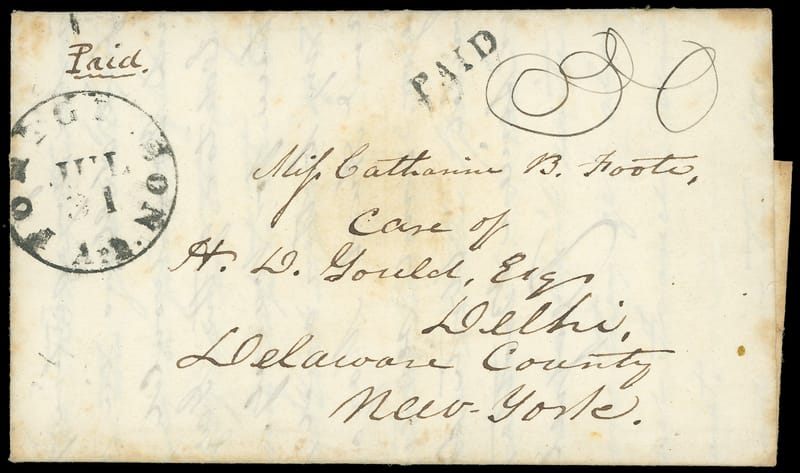 Paid.
PAID
JUL
31
Miss Catharine B. Foote,
Care of
H. D. Gould, Esqr
Delhi,
Delaware County
New-York.